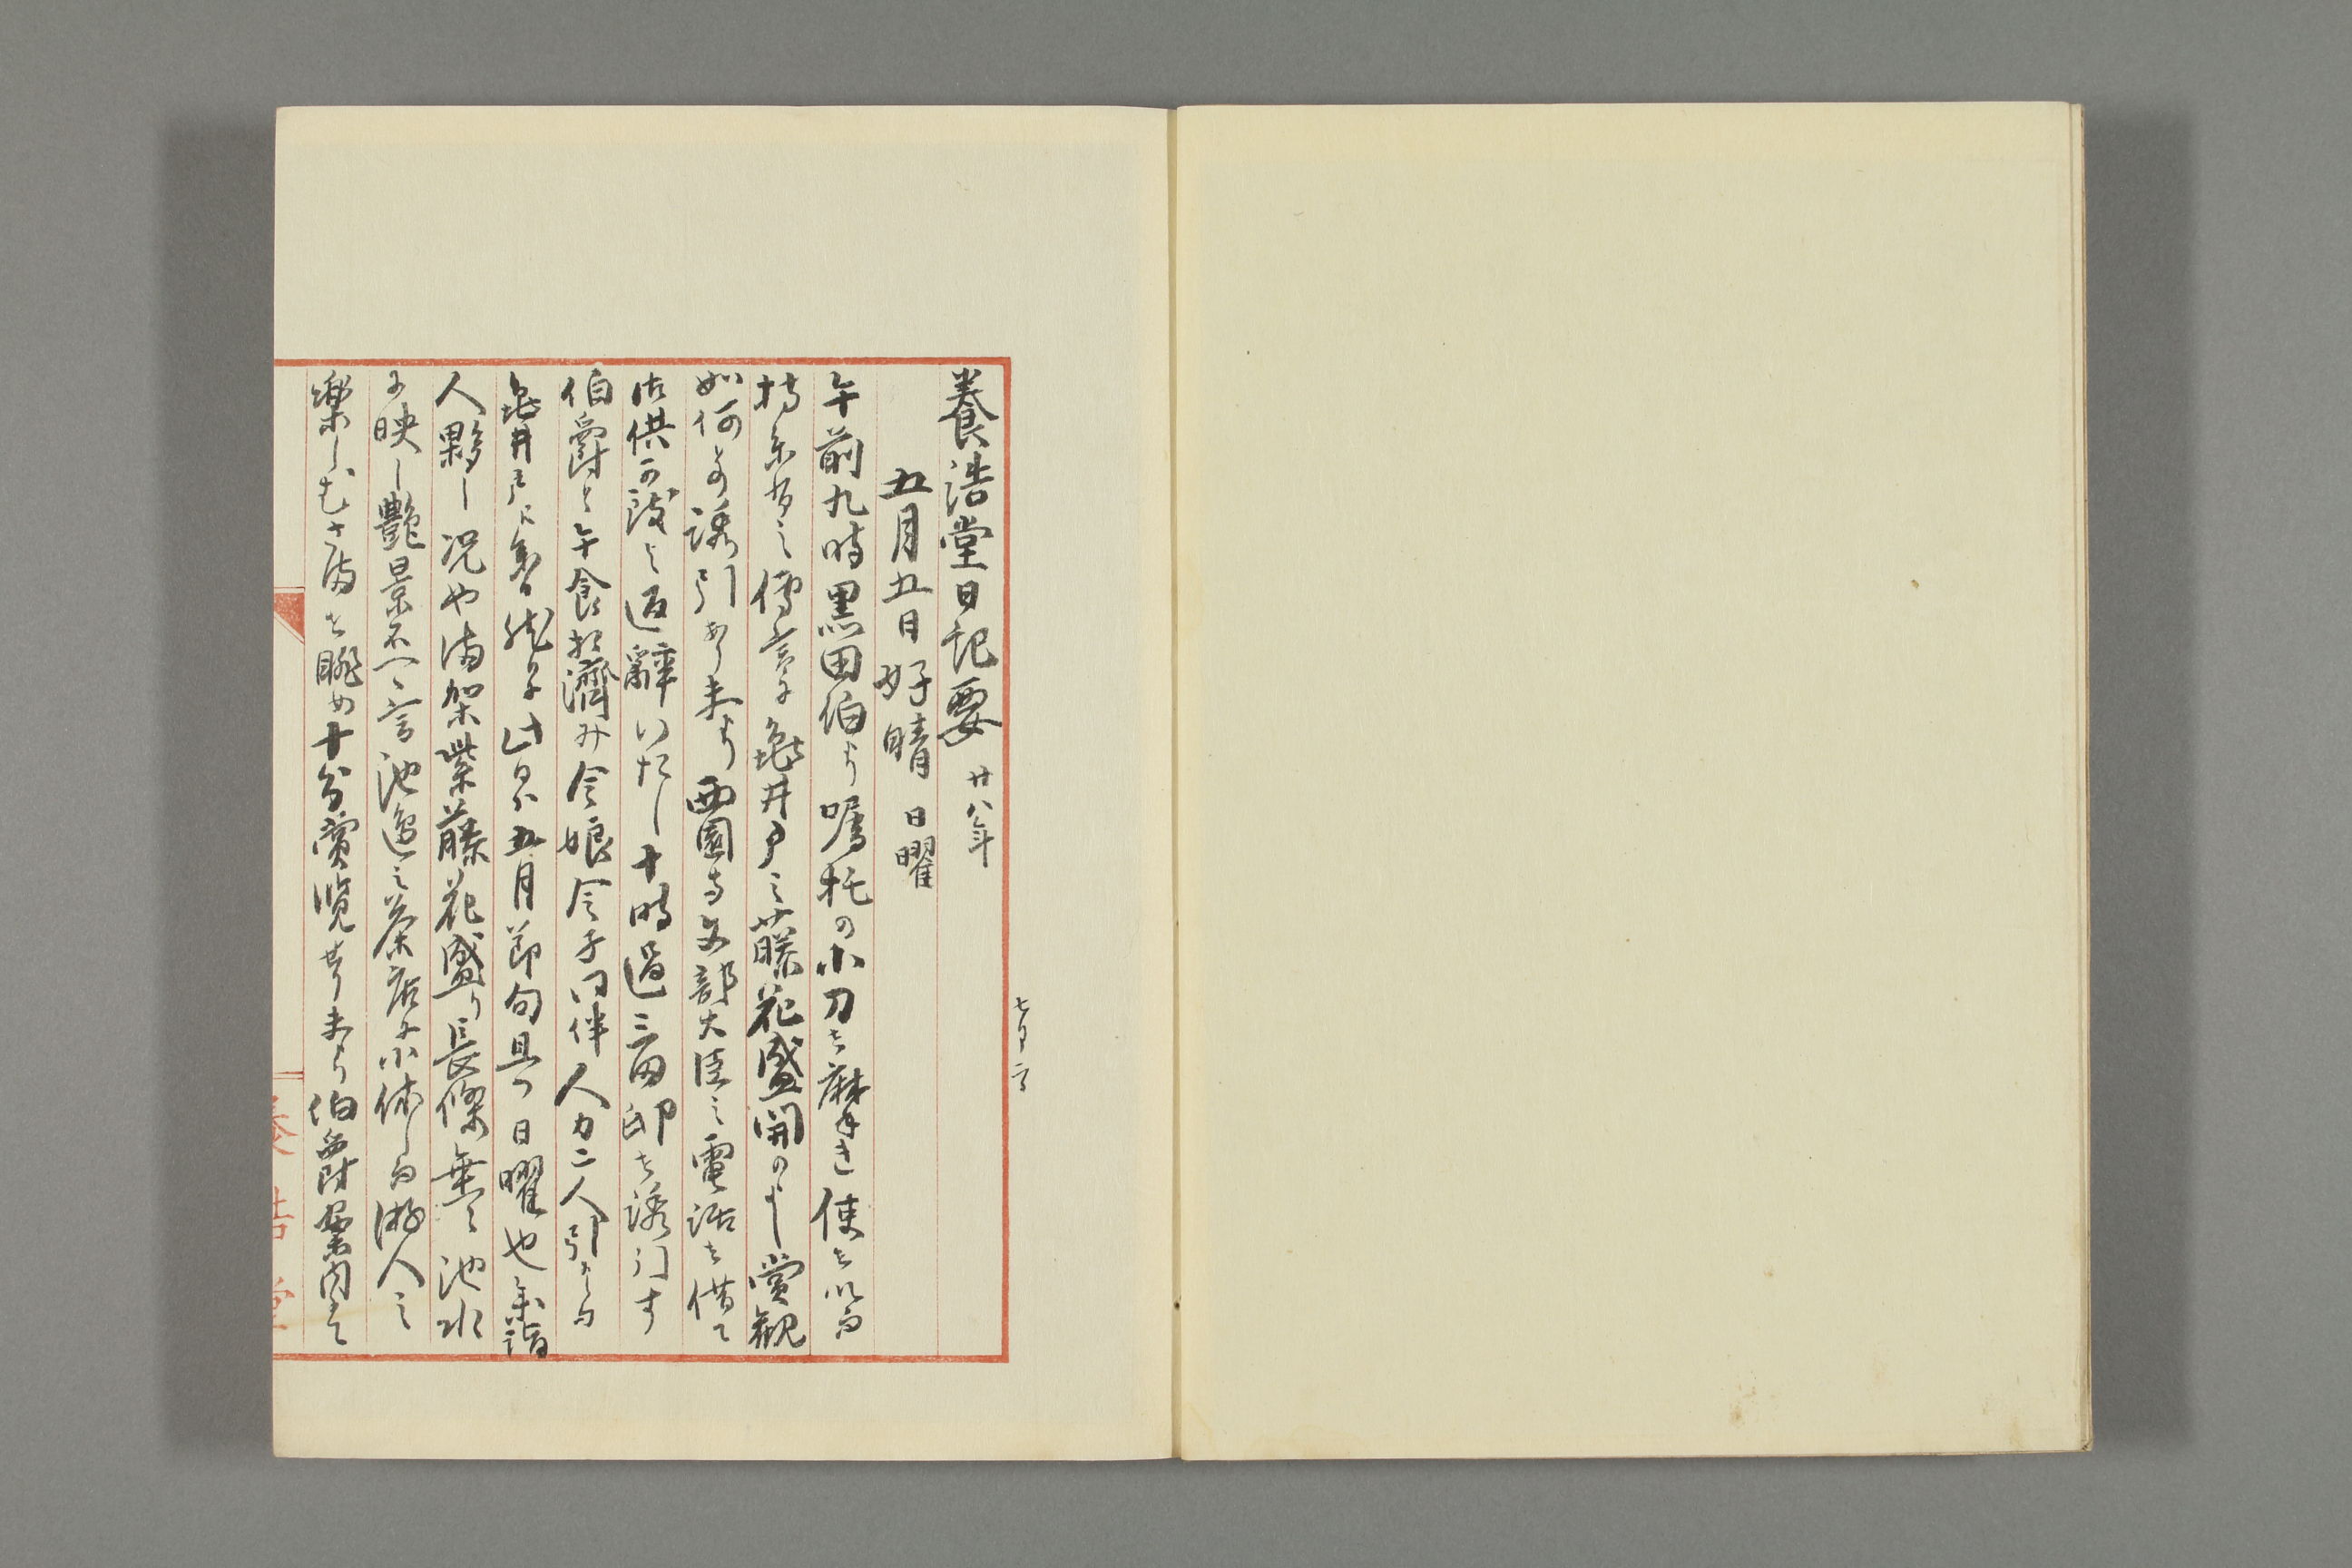 養浩堂日記要 廿八年
五月五日 好晴 日曜
午前九時黒田伯より嘱托の小刀を磨き使を以而
持参有之傳言に亀井戸之藤花盛開のよし賞観
如何与誘引あり来り西園寺文部大臣之電話を借て
御供可致と返辞いたし十時過三田邸を誘引す
伯爵と午食相濟み令娘令子同伴人力二人引に而
亀井戸に着能に此日ハ五月節句且つ日曜也参詣
人夥し況や満架紫藤花盛り長條垂て池水
に映し艶景不可言池邊之茶店に小休し而游人之
樂しむさ満を眺め十分賞覧せり夫より伯爵案内にて
七月二日
養浩堂